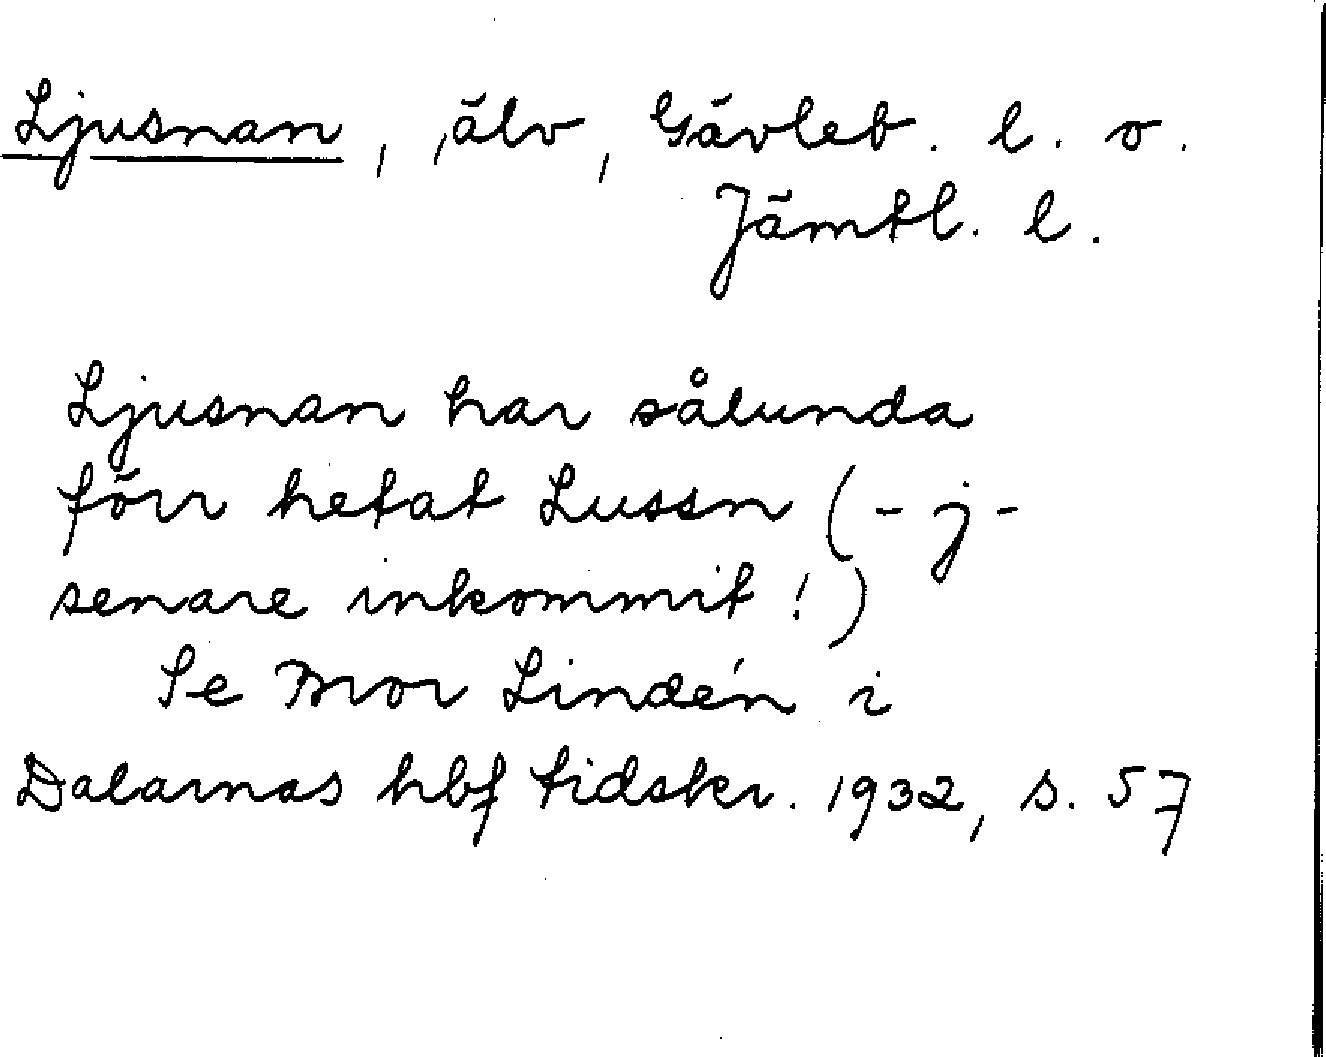 Ljusnan, älv, Gävleb. l. o.
Jämtl. l.
Ljusnan har sålunda
förr hetat Lussn (-j-
senare inkommit!)
Se Bror Lindén i
Dalarnas hbf tidskr. 1932, s. 57